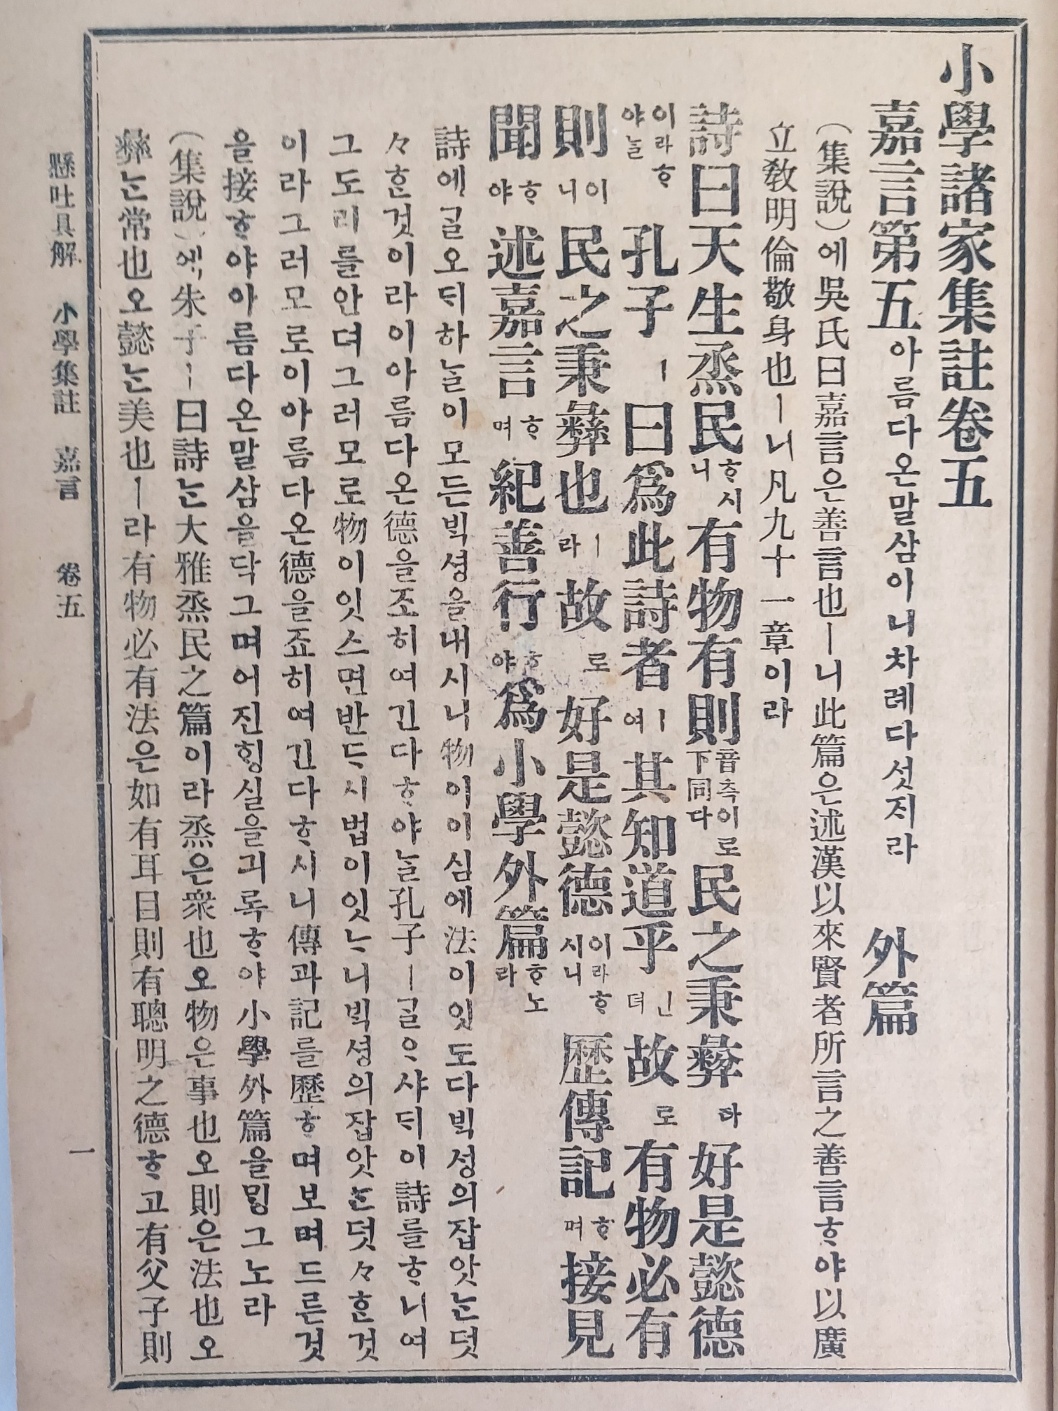 小學諸家集註卷五
嘉言第五 아름다온말삼이니차례다섯지라 外篇
(集說)에吳氏曰嘉言은善言也ㅣ니此篇은述漢以來賢者所言之善言ᄒᆞ야以廣
立敎明倫敬身也ㅣ니凡九十一章이라
詩曰天生烝民ᄒᆞ시니有物有則音측이로下同다民之秉彝라好是懿德
이라ᄒᆞ야ᄂᆞᆯ孔子ㅣ曰爲此詩者ㅣ여其知道乎ㄴ뎌故로有物必有
則이니民之秉彝也ㅣ라故로好是懿德이라ᄒᆞ시니歷傳記ᄒᆞ며接見
聞ᄒᆞ야述嘉言ᄒᆞ며紀善行ᄒᆞ야爲小學外篇ᄒᆞ노라
詩에ᄀᆞᆯ오ᄃᆡ하ᄂᆞᆯ이모든ᄇᆡᆨ셩을내시니物이이심에法이잇도다ᄇᆡᆨ성의잡앗ᄂᆞᆫ덧
々ᄒᆞᆫ것이라이아름다온德을죠히여긴다ᄒᆞ야ᄂᆞᆯ孔子ㅣᄀᆞᆯᄋᆞ샤ᄃᆡ이詩를ᄒᆞ니여
그도리를안뎌그러모로物이잇스면반ᄃᆞ시法이잇ᄂᆞ니ᄇᆡᆨ셩의잡앗ᄂᆞᆫ덧々ᄒᆞᆫ것
이라그러모로이아름다온德을죠히여긴다ᄒᆞ시니傳과記를歷ᄒᆞ며보며드른것
을接ᄒᆞ야아름다온말삼을닥그며어진ᄒᆡᆼ실을긔록ᄒᆞ야小學外篇을ᄆᆡᆼ그노라
(集說)에朱子ㅣ曰詩ᄂᆞᆫ大雅烝民之篇이라烝은衆也오物은事也오則은法也오
彝ᄂᆞᆫ常也오懿ᄂᆞᆫ美也ㅣ라有物必有法은如有耳目則有聰明之德ᄒᆞ고有父子則
懸吐具解 小學集註 嘉言 卷五 一